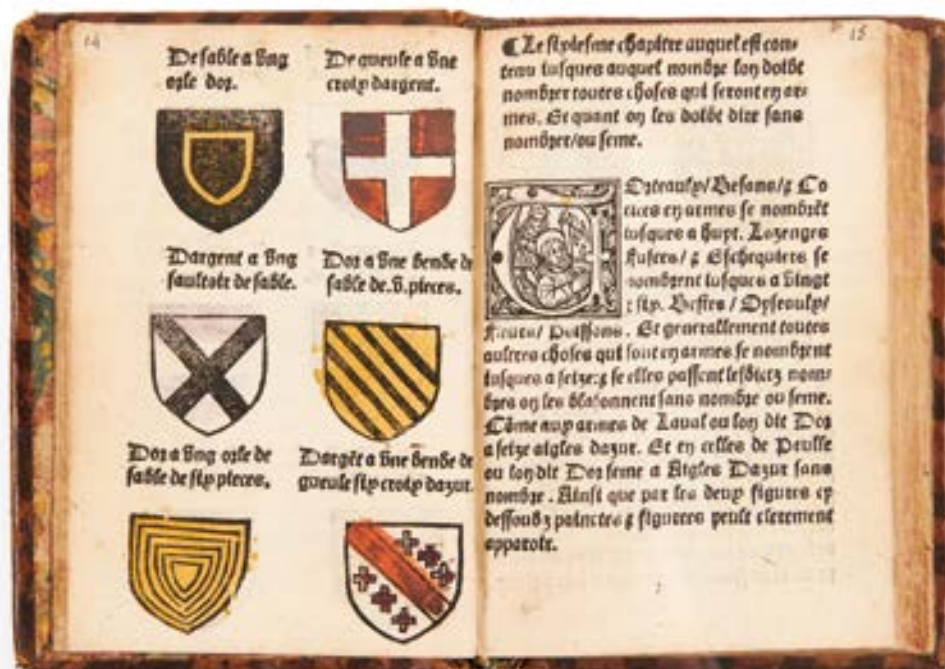 14
De sable a ung
orle dor.
De gueule a une
croix dargent.
Dargent a ung
saultoir de sable.
Dor a une bende de
sable de. v. pieces.
Dor a ung orle de
sable de six pieces.
Dargēt a une bende de
gueule six croix dazur.
15
¶ Le sixiesme chapitre auquel est con-
tenu iusques auquel nombre lon doibt
nombrer toutes choses qui seront en ar-
mes. Et quant on les doibt dire sans
nombre/ou seme.
TOrteaulx/Besans/⁊ Co
tices en armes se nombrēt
iusques a huyt. Lozenges
Fusees/⁊ Eschequiers se
nombrent iusques a vingt
⁊ six. Bestes / Oyseaulx/
Fleurs/ Poissons. Et generallement toutes
aultres choses qui sont en armes se nombrent
iusques a seize:⁊ se elles passent lesdictz nom-
bres on les blasonnent sans nombre ou seme.
Cōme aux armes de Laval ou lon dit Dor
a seize aigles dazur. Et en celles de Peulle
ou lon dit Dor seme a Aigles Dazur sans
nombre. Ainsi que par les deux figures cy
dessoubz painctes ⁊ figurees peult clerement
apparoir.